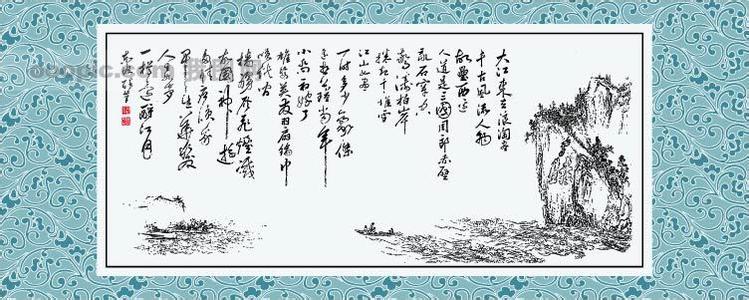 大江東去浪淘盡
千古風流人物
故壘西邊
人道是三國周郎赤壁
亂石穿空
驚濤拍岸
捲起千堆雪
江山如畫
一時多少豪傑
遙想公瑾當年
小喬初嫁了
雄姿英發羽扇綸巾
談笑間
檣櫓灰飛煙滅
故國神遊
多情應笑我
早生華髮
人生如夢
一樽還酹江月